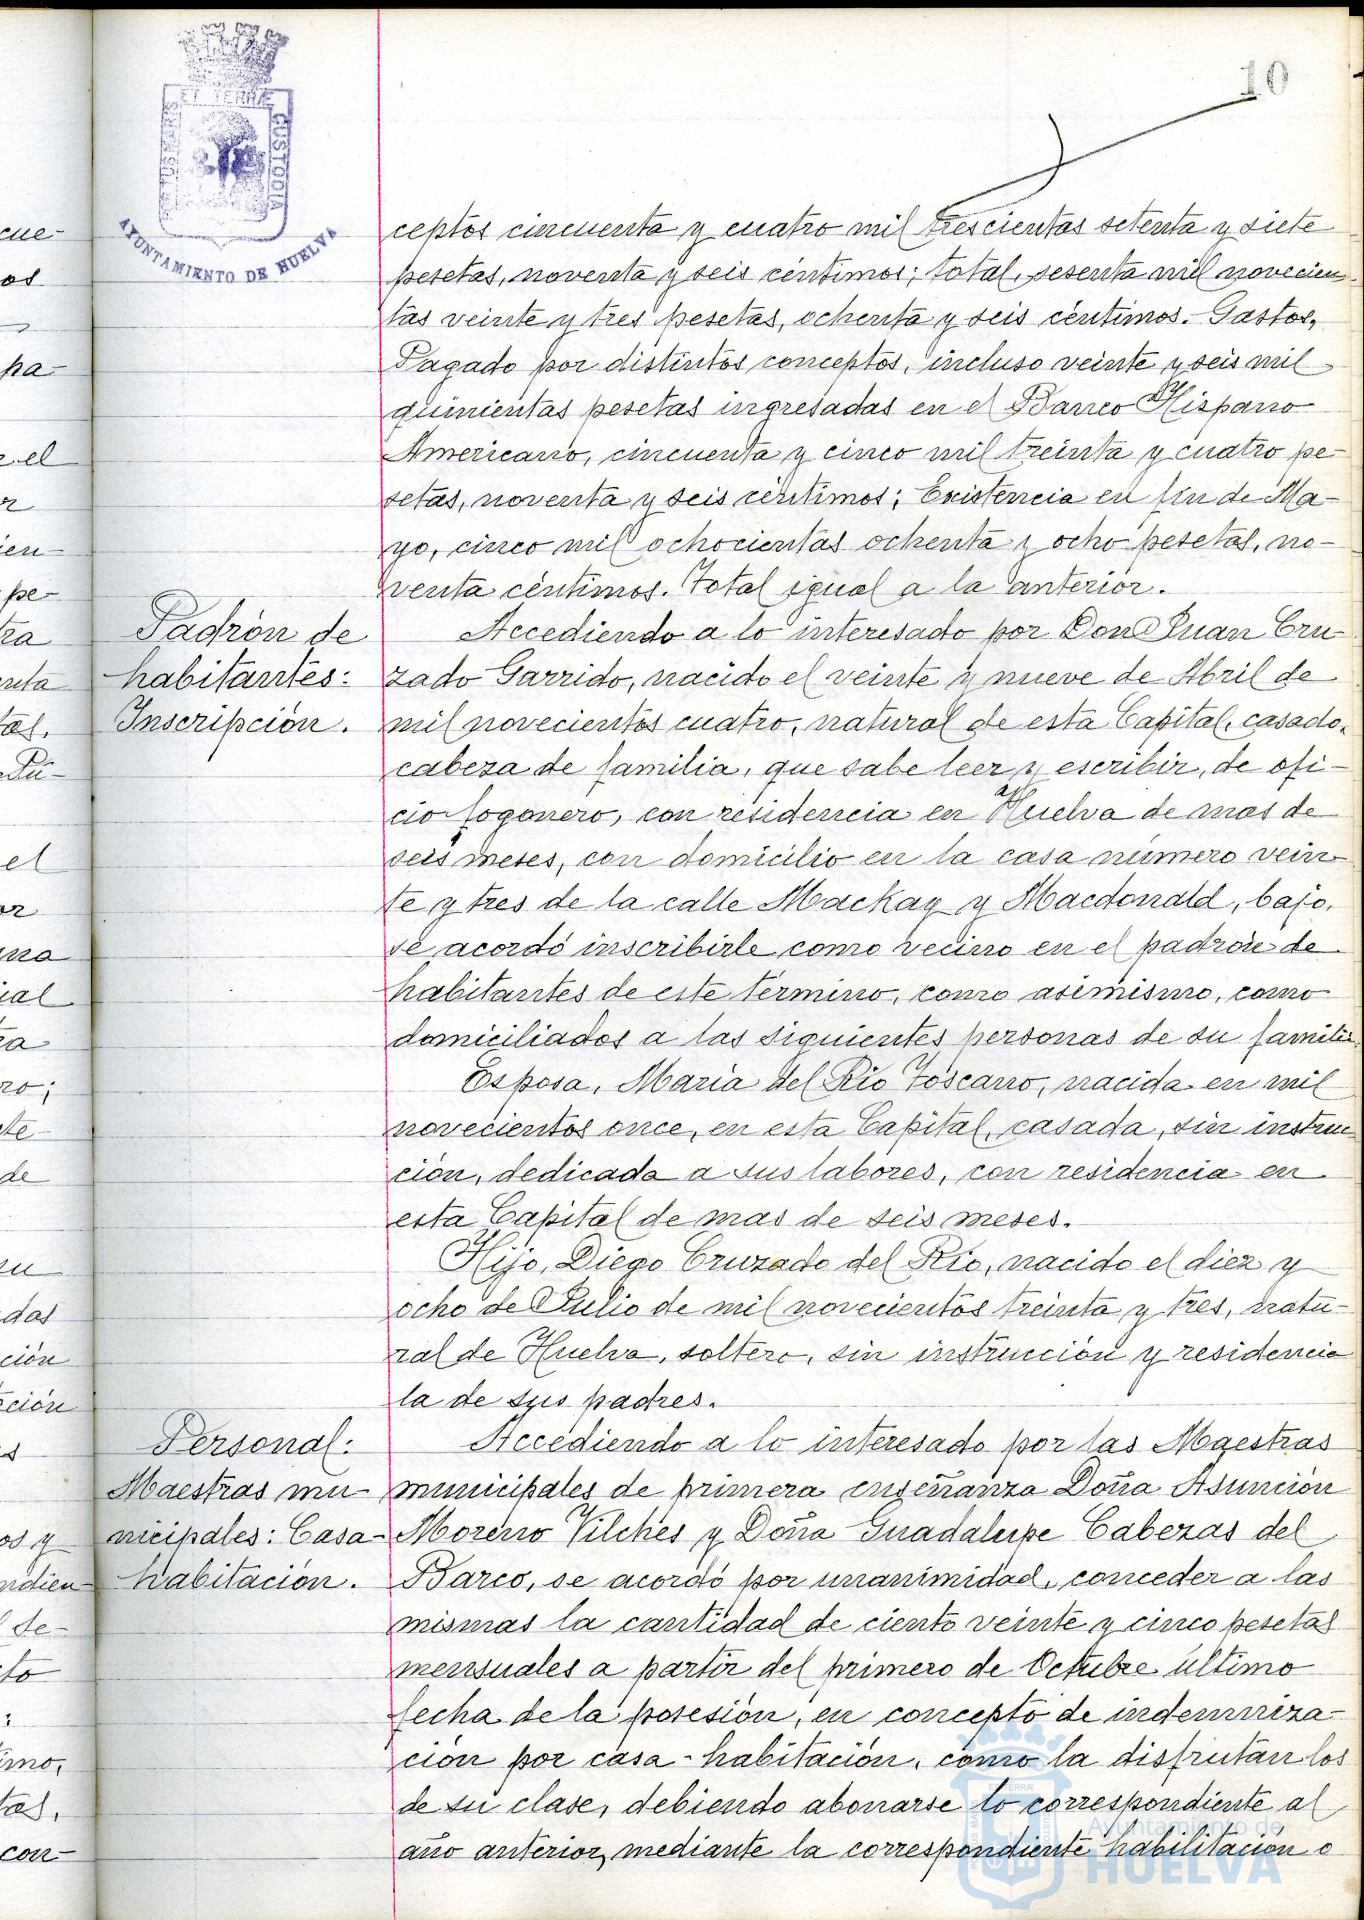 10
PORTUS MARIS
ET TERRÆ
CUSTODIA
AYUNTAMIENTO DE HUELVA
ceptos cincuenta y cuatro mil trescientas setenta y siete
pesetas, noventa y seis céntimos; total, sesenta mil novecien-
tas veinte y tres pesetas, ochenta y seis céntimos.- Gastos,
Pagado por distintos conceptos, incluso veinte y seis mil
quinientas pesetas ingresadas en el Banco Hispano
Americano, cincuenta y cinco mil treinta y cuatro pe-
setas, noventa y seis céntimos; Existencia en fin de Ma-
yo, cinco mil ochocientas ochenta y ocho pesetas, no-
venta céntimos. Total igual a la anterior.
Padrón de
habitantes:
Inscripción.
Accediendo a lo interesado por Don Juan Cru-
zado Garrido, nacido el veinte y nueve de Abril de
mil novecientos cuatro, natural de esta Capital, casado,
cabeza de familia, que sabe leer y escribir, de ofi-
cio fogonero, con residencia en Huelva de mas de
seis meses, con domicilio en la casa número vein-
te y tres de la calle Mackay y Macdonald, bajo,
se acordó inscribirle como vecino en el padrón de
habitantes de este término, como asimismo, como
domiciliados a las siguientes personas de su familia.
Esposa, María del Rio Toscano, nacida en mil
novecientos once, en esta Capital, casada, sin instruc-
ción, dedicada a sus labores, con residencia en
esta Capital de mas de seis meses.
Hijo, Diego Cruzado del Rio, nacido el diez y
ocho de Julio de mil novecientos treinta y tres, natu-
ral de Huelva, soltero, sin instrucción y residencia
la de sus padres.
Personal:
Maestras mu-
nicipales: Casa-
habitación.
Accediendo a lo interesado por las Maestras
municipales de primera enseñanza Doña Asunción
Moreno Vilches y Doña Guadalupe Cabezas del
Barco, se acordó por unanimidad, conceder a las
mismas la cantidad de ciento veinte y cinco pesetas
mensuales a partir del primero de Octubre último
fecha de la posesión, en concepto de indemniza-
ción por casa-habitación, como la disfrutan los
de su clase, debiendo abonarse lo correspondiente al
año anterior, mediante la correspondiente habilitacion o
Ayuntamiento de
HUELVA